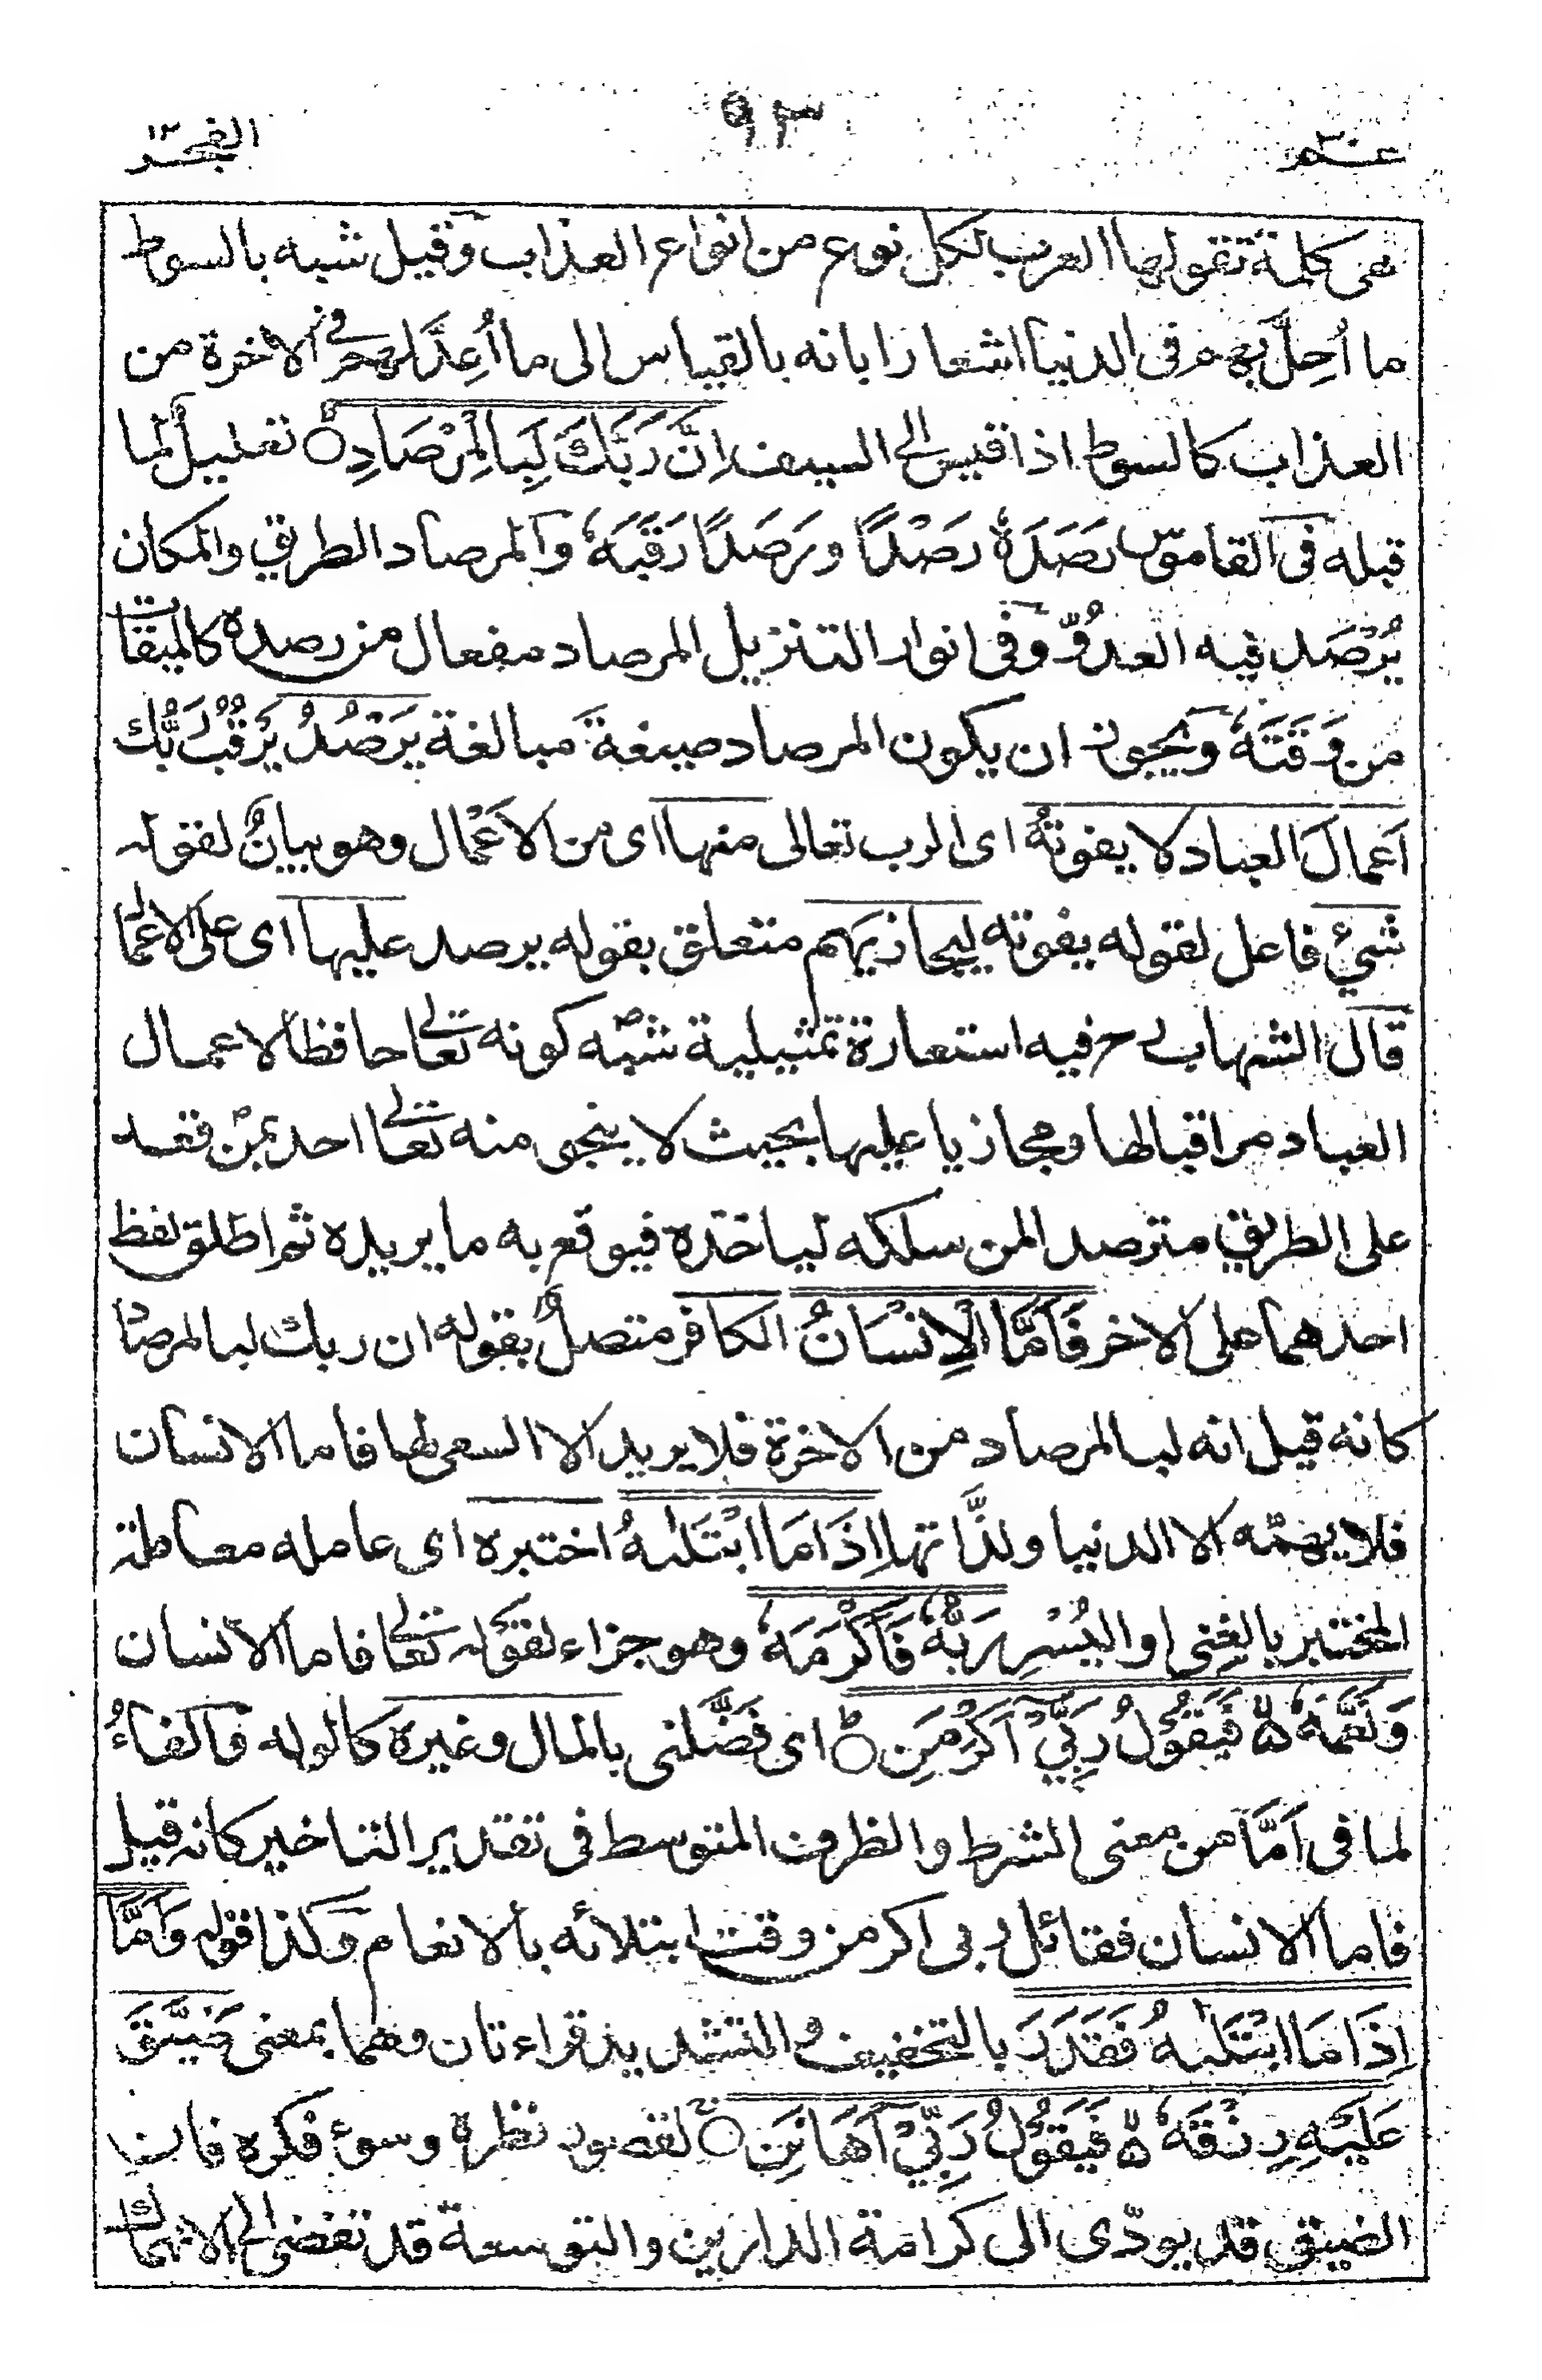 عـم٣٠
٩٣
الفجر١٢
هى كلمة تقولها العرب لكل نوع من انواع العذاب وقيل شبه بالسوط
ما اُحِلَّ بهم فى الدنيا اشعارا بانه بالقياس الى ما اُعِدَّ لهم فى الاخرة من
العذاب كالسوط اذا قيس الى السيف اِنَّ رَبَّكَ لَبِالْمِرْصَادِ ○ تعليل لما
قبله فى القاموس رَصَدَهٗ رَصْدًا ورَصَدًا رَقَبَهٗ والمرصاد الطريق والمكان
يُرْصَد فيه العدوُّ وفى انوار التنزيل المرصاد مفعال من رصده كالميقات
من وَقَتَهٗ ويجوز ان يكون المرصاد صيغة مبالغة يَرْصُدُ يَرْقُبُ رَبُّك
اَعمالَ العباد لا يفوتهٗ اى الرب تعالى منها اى من الاَعْمال وهو بيانٌ لقوله
شئ فاعل لقوله يفوته ليجازيهم متعلق بقوله يرصد عليها اى على الاعمال
قال الشهاب رح فيه استعارة تمثيلية شبّه كونه تعالى حافظا لاعمال
العباد مراقبا لها ومجازيا عليها بحيث لا ينجى منه تعالى احد بمن قعد
على الطريق مترصدا لمن سلكه لياخذه فيوقع به ما يريده ثم اطلق لفظ
احدهما على الاخر فَاَمَّا الْاِنْسَانُ الكافر متصلٌ بقوله ان ربك لبالمرصاد
كانه قيل انه لبالمرصاد من الاخرة فلا يريد الا السعى لها فاما الانسان
فلا يهمّه الا الدنيا ولذّاتها اِذَا مَا ابْتَلٰىهُ اختبره اى عامله معاملة
المختبر بالغِنى او اليُسْرِ رَبُّهٗ فَاَكْرَمَهٗ وهو جزاء لقوله تعالى فاما الانسان
وَنَعَّمَهٗ ۵ فَيَقُوْلُ رَبِّيْٓ اَكْرَمَنِ ○ اى فَضَّلنى بالمال وغيره كالوله فالفاءُ
لما فى اَمَّا من معنى الشرط والظرف المتوسط فى تقدير التاخير كانه قيل
فاما الانسان فقائل ربى اكرمن وقت ابتلائه بالانعام وكذا قوله وَاَمَّا
اِذَا مَا ابْتَلٰىهُ فَقَدَرَ بالتخفيف والتشديد قراءتان وهما بمعنى ضَيَّقَ
عَلَيْهِ رِزْقَهٗ ۵ فَيَقُوْلُ رَبِّيْٓ اَهَانَنِ ○ لقصور نظره وسوء فكره فان
الضيق قد يودّى الى كرامة الدارين والتوسعة قد تفضى الى الانهماك